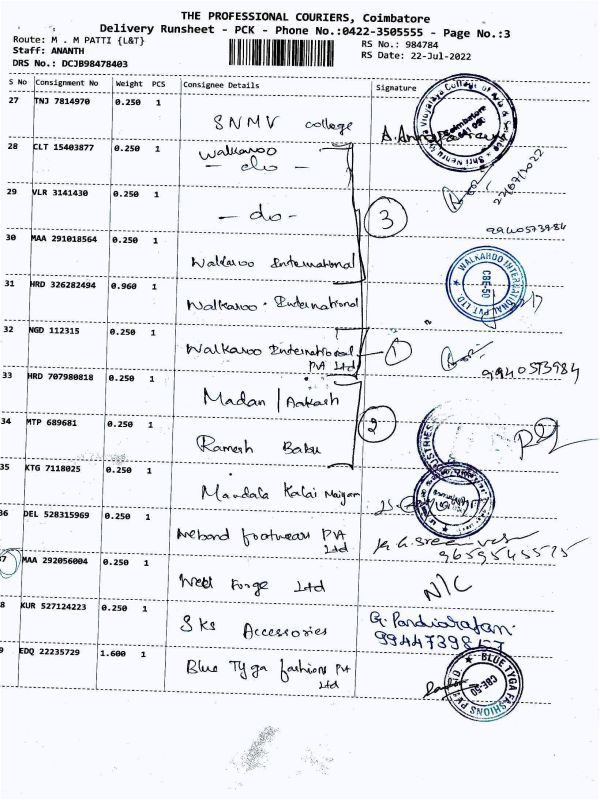 THE PROFESSIONAL COURIERS, Coimbatore
Delivery Runsheet - PCK - Phone No.:0422-3505555 - Page No.:3
Route: M . M PATTI {L&T}
RS No.: 984784
Staff: ANANTH
RS Date: 22-Jul-2022
DRS No.: DCJB98478403
S No Consignment No Weight PCS Consignee Details Signature
27 TNJ 7814970 0.250 1
SNMV college
28 CLT 15403877 0.250 1
Walkaroo
- do -
22/07/2022
29 VLR 3141430 0.250 1
- do -
3
9940573984
30 MAA 291018564 0.250 1
Walkaroo International
WALKAROO INTERNATIONAL PVT LTD
CBE-50
31 HRD 326282494 0.960 1
Walkaroo. International
32 NGD 112315 0.250 1
Walkaroo International
Pvt Ltd
1
9940573984
33 HRD 707980818 0.250 1
Madan / Aakash
2
34 MTP 689681 0.250 1
Ramesh Babu
35 KTG 7118025 0.250 1
Mandala Kalai
36 DEL 528315969 0.250 1
footwears Pvt
Ltd
9659545575
37 MAA 292056004 0.250 1
West Forge Ltd
N/C
8 KUR 527124223 0.250 1
SKS Accessories
G. Pandiarajan.
9 EDQ 22235729 1.600 1
Blue Tyga fashions Pvt
Ltd
BLUE TYGA FASHIONS
CBE-50